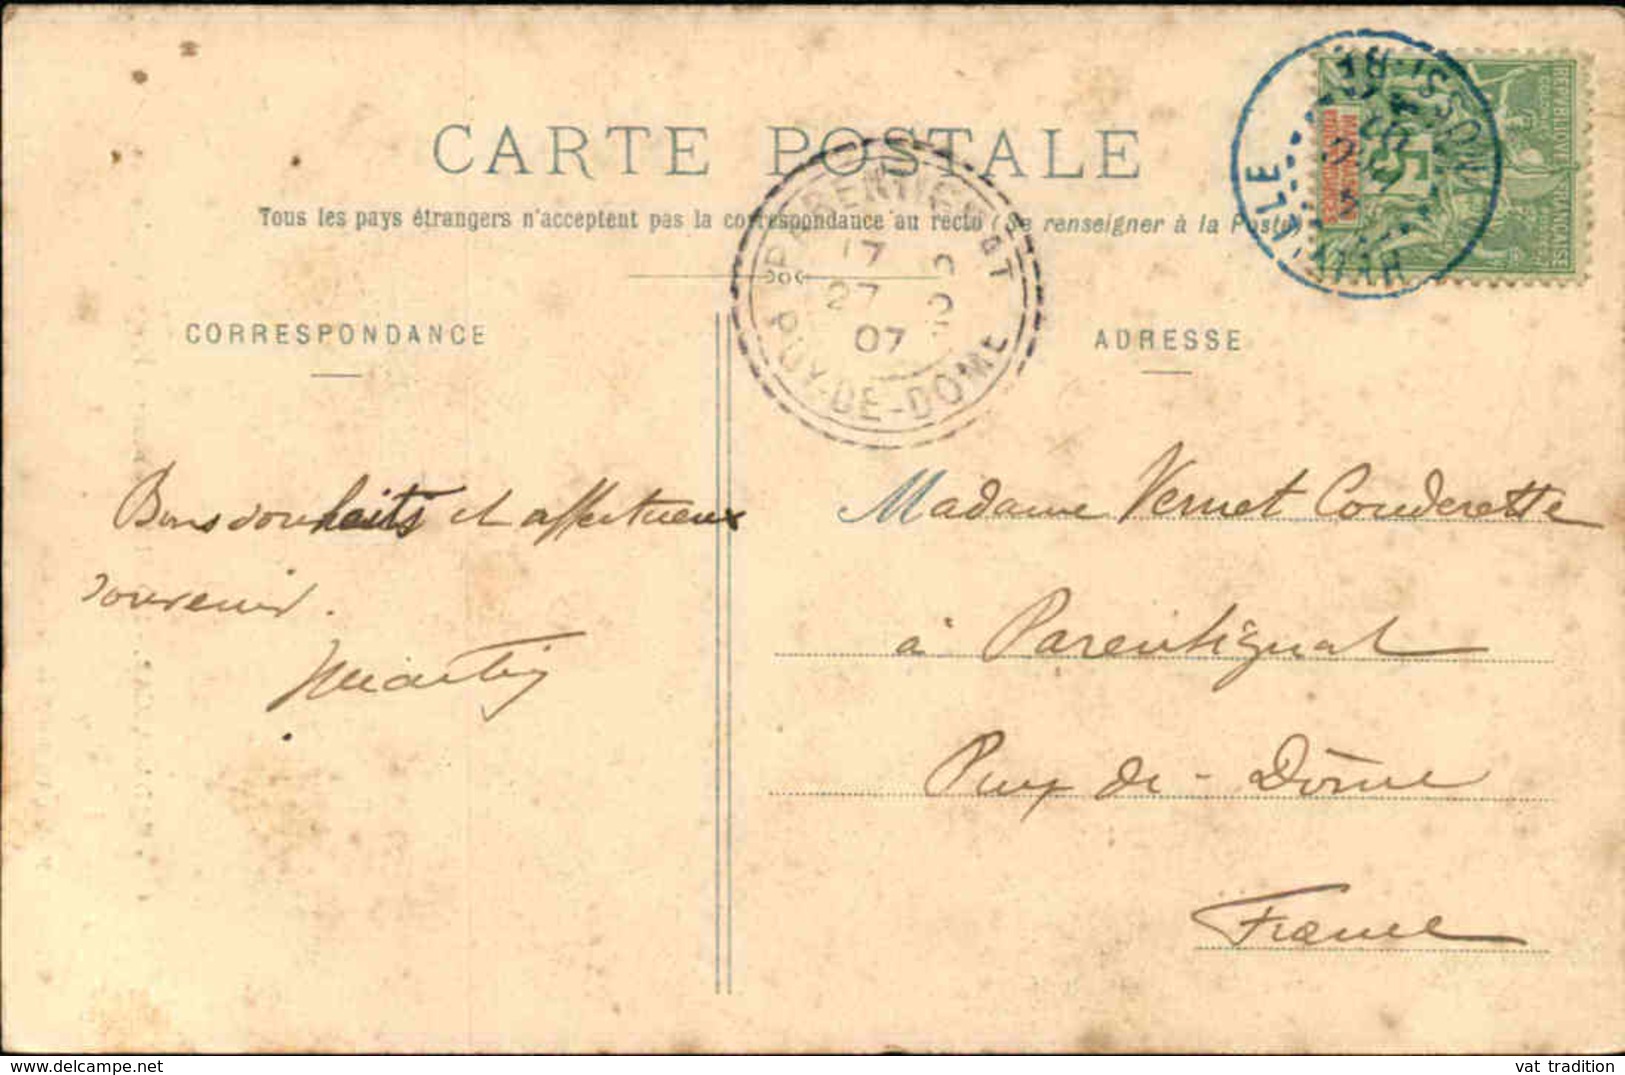 CARTE POSTALE
Tous les pays étrangers n'acceptent pas la correspondance au recto (Se renseigner à la Poste
CORRESPONDANCE
ADRESSE
PARENTIGNAT
17
27
07
PUY-DE-DOME
NOSSI-BÉ
HELLVILLE
5
RÉPUBLIQUE FRANÇAISE
Bons souhaits et affectueux
souvenir.
Martin
Madame Vernet Couderette
à Parentignat
Puy de-Dôme
France
vat tradition